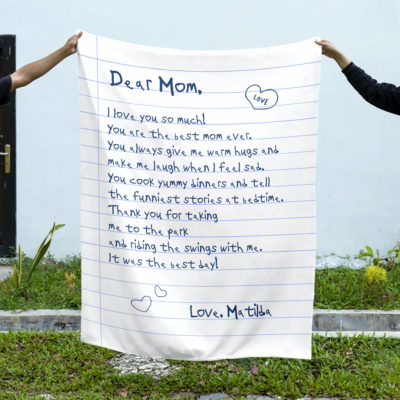 Dear Mom,
LOVE
I love you so much!
You are the best mom ever.
You always give me warm hugs and
make me laugh when I feel sad.
You cook yummy dinners and tell
the funniest stories at bedtime.
Thank you for taking
me to the park
and riding the swings with me.
It was the best day!
Love, Matilda